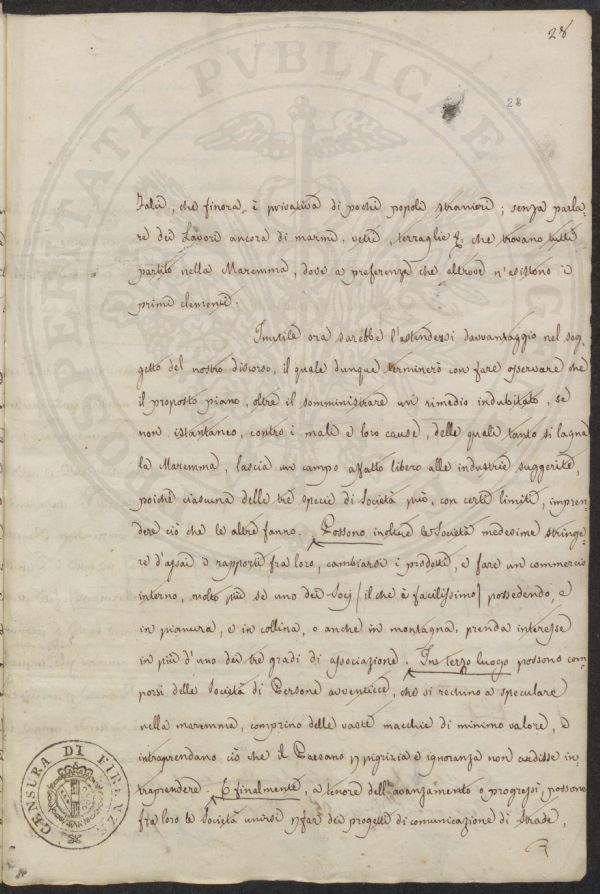 28
28
PROSPERITATI PVBLICAE
che finora è privativa di pochi popoli stranieri; senza parla=
re dei Lavori ancora di marmi, vetri, terraglie &. che trovano tutti
partito nella Maremma, dove a preferenza che altrove n'esistono i
primi elementi.
Inutile ora sarebbe l'estendersi davvantaggio nel sog=
getto del nostro discorso, il quale dunque terminerò con fare osservare che
il proposto piano, oltre il somministrare un rimedio indubitato, se
non istantaneo, contro i mali e loro cause, delle quali tanto si lagna
la Maremma, lascia un campo affatto libero alle industrie suggerite,
poiché ciascuna delle tre specie di Società può, con certi limiti, impren=
dere ciò che le altre fanno. Possono inoltre le Società medesime stringe=
re d'assai i rapporti fra loro, cambiarsi i prodotti, e fare un commercio
interno, molto più se uno dei Socj /il che è facilissimo/ possedendo, e
in pianura, e in collina, o anche in montagna, prenda interesse
in più d'uno dei tre gradi di associazione. In terzo luogo possono com=
porsi delle Società di Persone avventicce, che si rechino a speculare
nella maremma, comprino delle vaste macchie di minimo valore, e
intraprendano ciò che il Paesano p pigrizia e ignoranza non ardisse in=
traprendere. E finalmente, a tenore dell'avanzamento o progressi, possono
fra loro le Società unirsi p fare dei progetti di comunicazione di Strade,
CENSURA DI FIRENZE